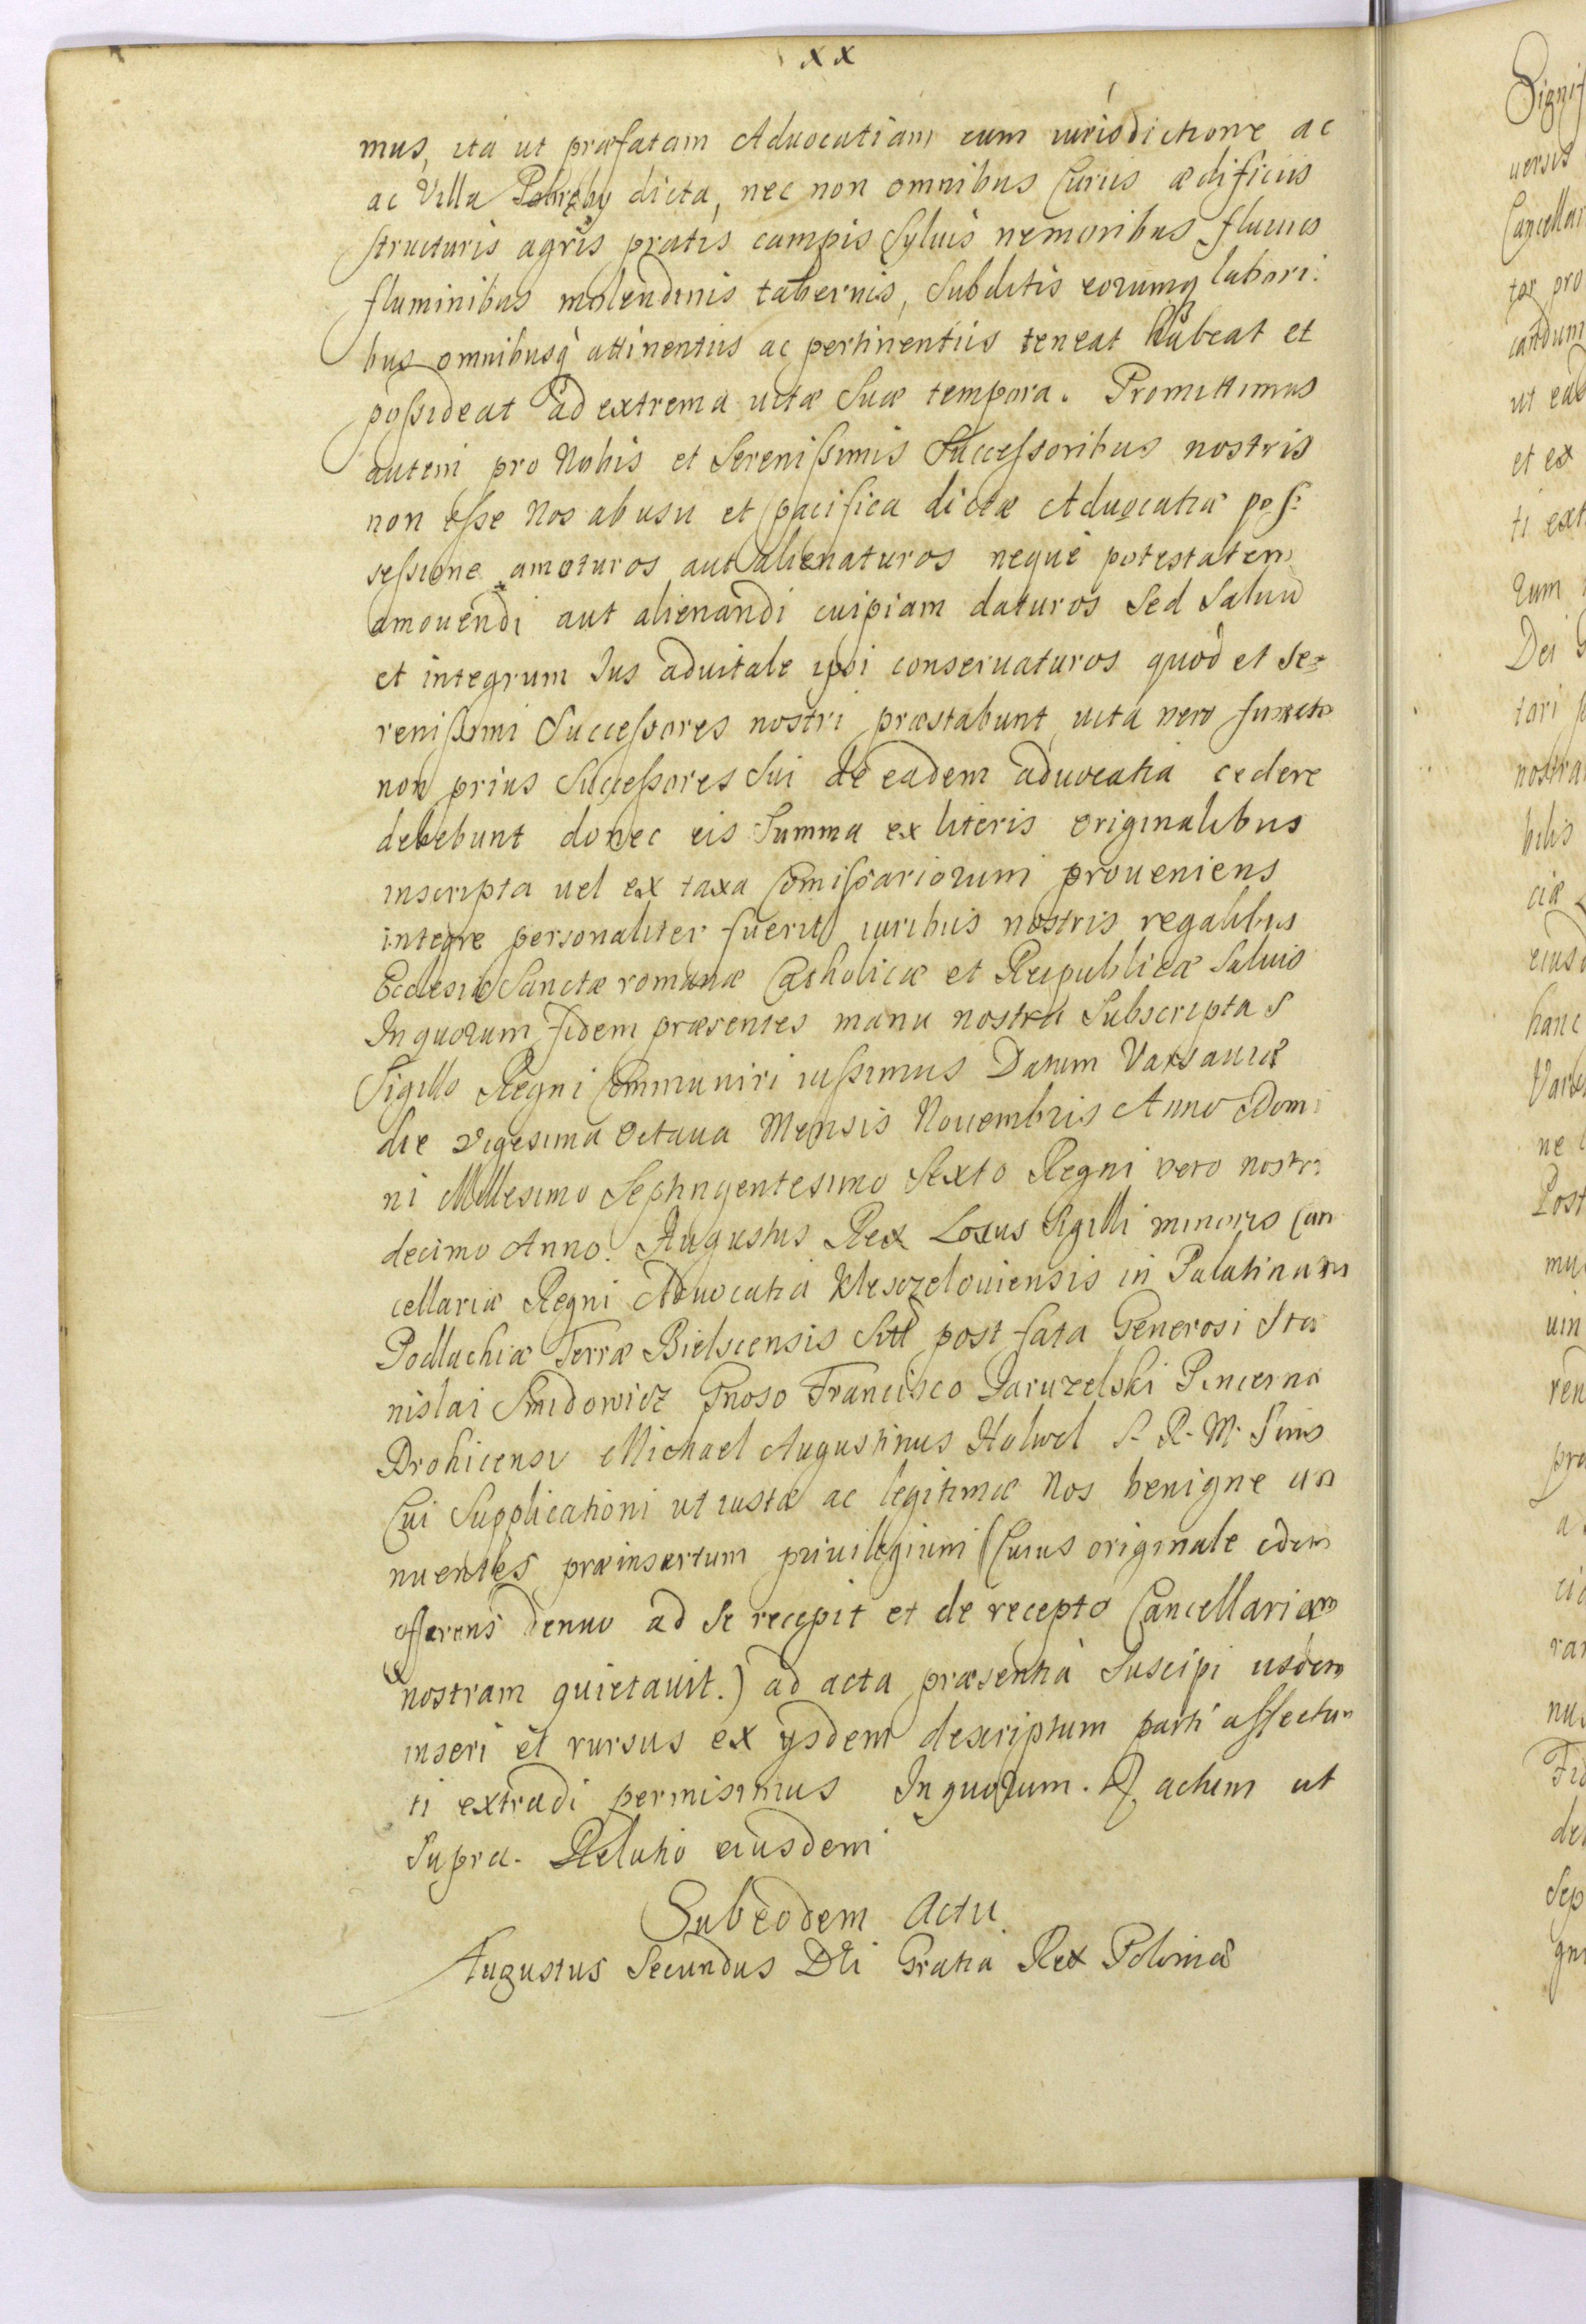 xx
mus, ita ut præfatam Advocatiam cum iurisdictione ac
ac Villa Pohręby dicta, nec non omnibus Curiis ædificiis
structuris agris pratis campis Syluis nemoribus fluuiis
fluminibus molendinis tabernis, Subditis eorumq labori:
bus omnibusq attinentiis ac pertinentiis teneat habeat et
possideat ad extrema uitæ Suæ tempora. Promittimus
autem pro Nobis et Serenissimis Successoribus nostris
non esse Nos ab usu et pacifica dictæ Aduocatiæ pos:
sessione amoturos aut alienaturos neque potestatem
amouendi aut alienandi cuipiam daturos Sed Saluu
et integrum Ius aduitale ipsi conseruaturos quod et Se=
renissimi Successores nostri præstabunt uita vero functo
non prius Successores Sui de eadem aduocatia cedere
debebunt donec eis Summa ex literis originalibus
inscripta uel ex taxa Comissariorum proueniens
integre personaliter fuerit iuribus nostris regalibus
Ecclesiæ Sanctæ romanæ Catholicæ et Reipublicæ Saluis
In quorum fidem præsentes manu nostra Subscripta S
Sigillo Regni Communiri iussimus Datum Varsauiæ
die vigesima Octaua Mensis Nouembris Anno Domi
ni Millesimo Septingentesimo Sexto Regni vero nostri
decimo Anno. Augustus Rex Loxus Sigilli minoris Can
cellariæ Regni Advocatia Klesozelouiensis in Palatinatu
Podlachiæ Terræ Bielscensis Sitt post fata Generosi Sta
nislai Smidowicz Gnoso Francisco Jaruzelski Pincerna
Drohicensi Michael Augustinus Holwel S. R. M. Sims
Cui Supplicationi ut iustæ ac legitimæ Nos benigne an
nuentes præinsertum priuilegium (Cuius originale idem
offerens denuo ad Se recepit et de recepto Cancellariam
nostram quietauit.) ad acta præsentia Suscipi usdem
inseri et rursus ex ysdem descriptum parti affectan
ti extradi permisimus In quorum. Q. actum ut
Supra. Relatio eiusdem
Sub eodem Actu
Augustus Secundus Dei Gratia Rex Poloniæ